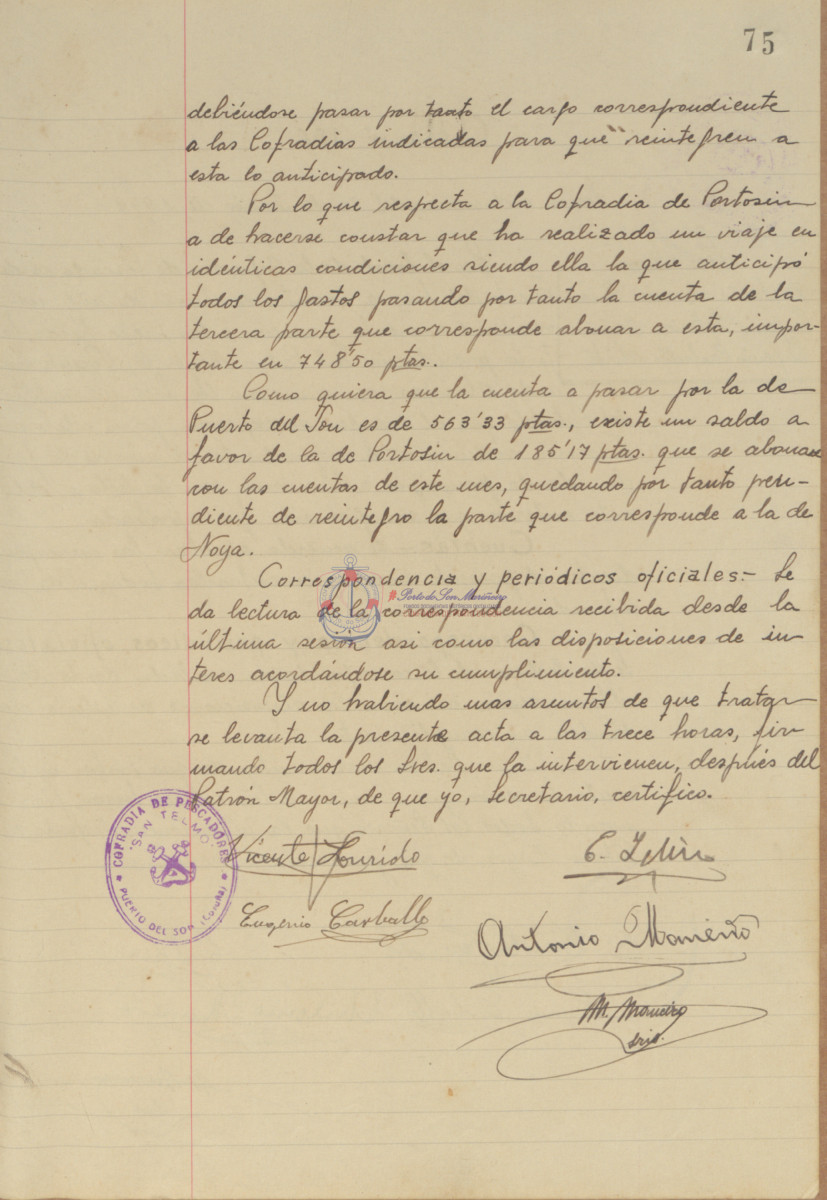 75
debiéndose pasar por tanto el cargo correspondiente
a las Cofradias indicadas para que reintegren a
esta lo anticipado.
Por lo que respecta a la Cofradia de Portosin
a de hacerse constar que ha realizado un viaje en
idénticas condiciones siendo ella la que anticipó
todos los gastos pasando por tanto la cuenta de la
tercera parte que corresponde abonar a esta, impor-
tante en 748'50 ptas.
Como quiera que la cuenta a pasar por la de
Puerto del Son es de 563'33 ptas., existe un saldo a
favor de la de Portosin de 185'17 ptas. que se abona
con las cuentas de este mes, quedando por tanto pen-
diente de reintegro la parte que corresponde a la de
Noya.
Correspondencia y periódicos oficiales:- Se
da lectura de la correspondencia recibida desde la
última sesión asi como las disposiciones de in-
teres acordándose su cumplimiento.
Y no habiendo mas asuntos de que tratar
se levanta la presente acta a las trece horas, fir-
mando todos los Sres. que la intervienen, después del
Patrón Mayor, de que yo, Secretario, certifico.
COFRADIA DE PESCADORES
"SAN TELMO"
PUERTO DEL SON (Coruña)
Vicente Lourido
Eugenio Carballo
Antonio Maneiro
M. Maneiro
Srio.
Porto do Son Mariñeiro